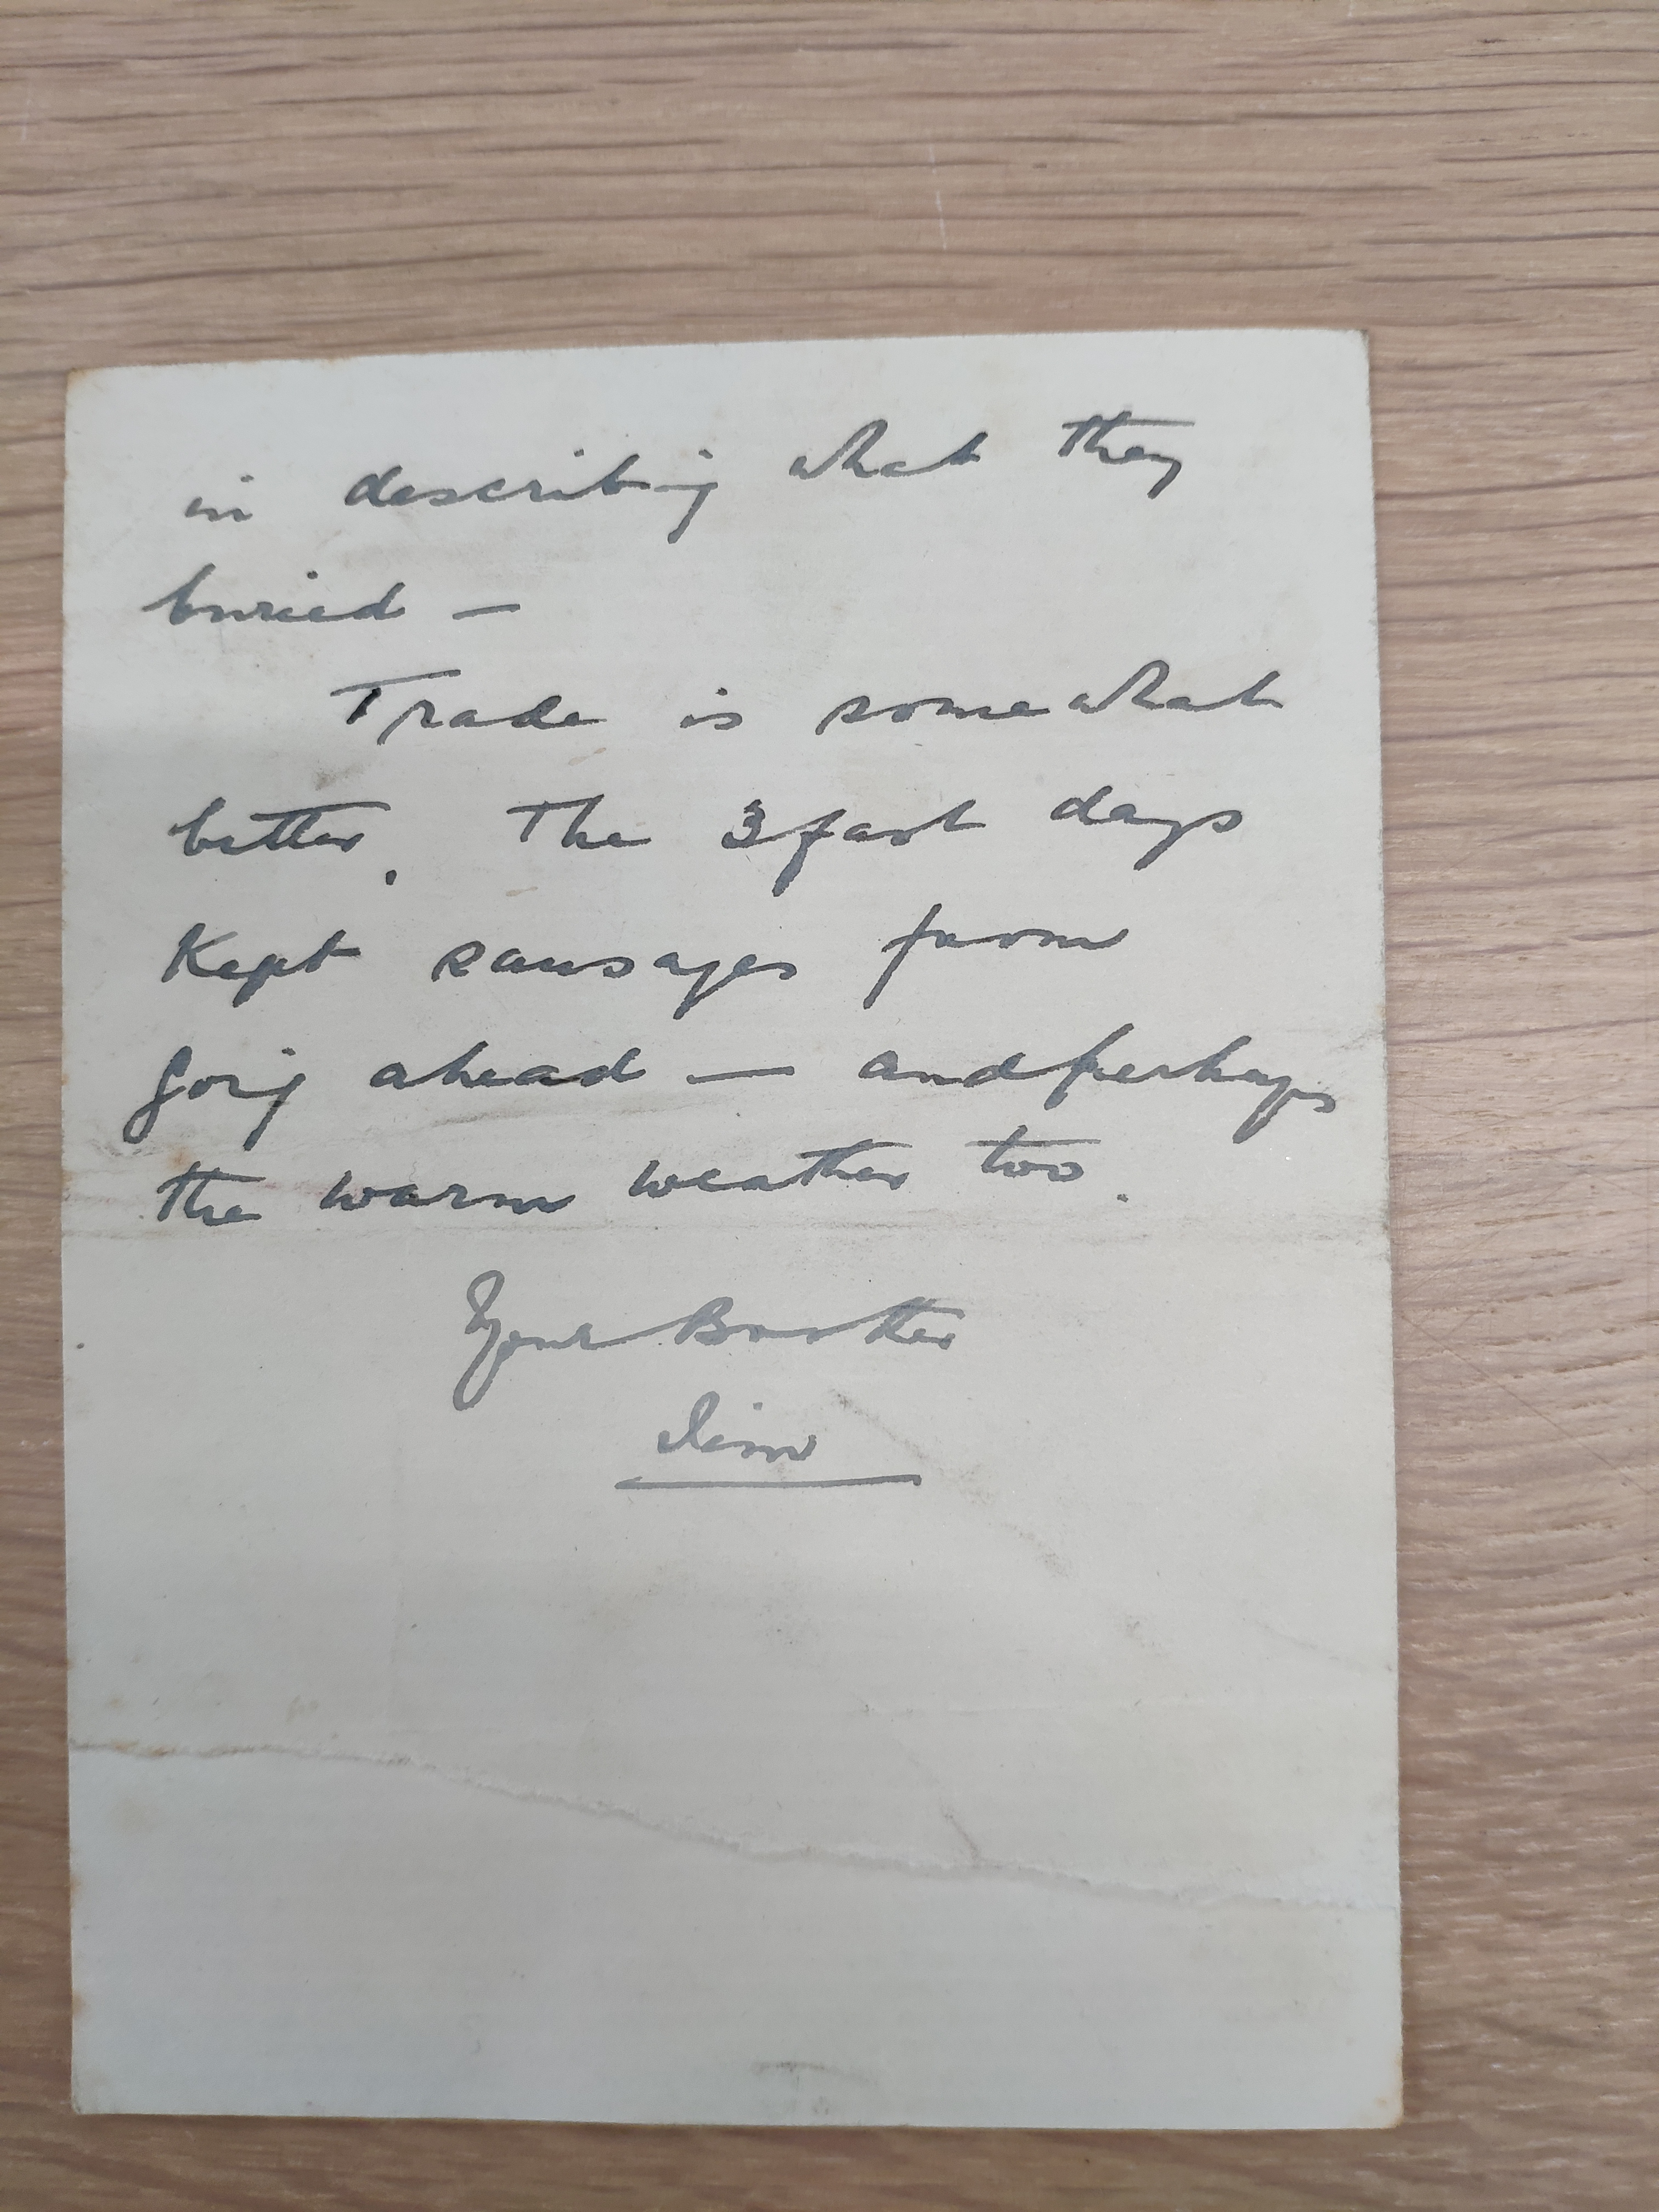 in describing what they
buried —
Trade is somewhat
better. The 3 fast days
Kept sausages from
going ahead — and perhaps
the warm weather too.
Your Brother
Jim